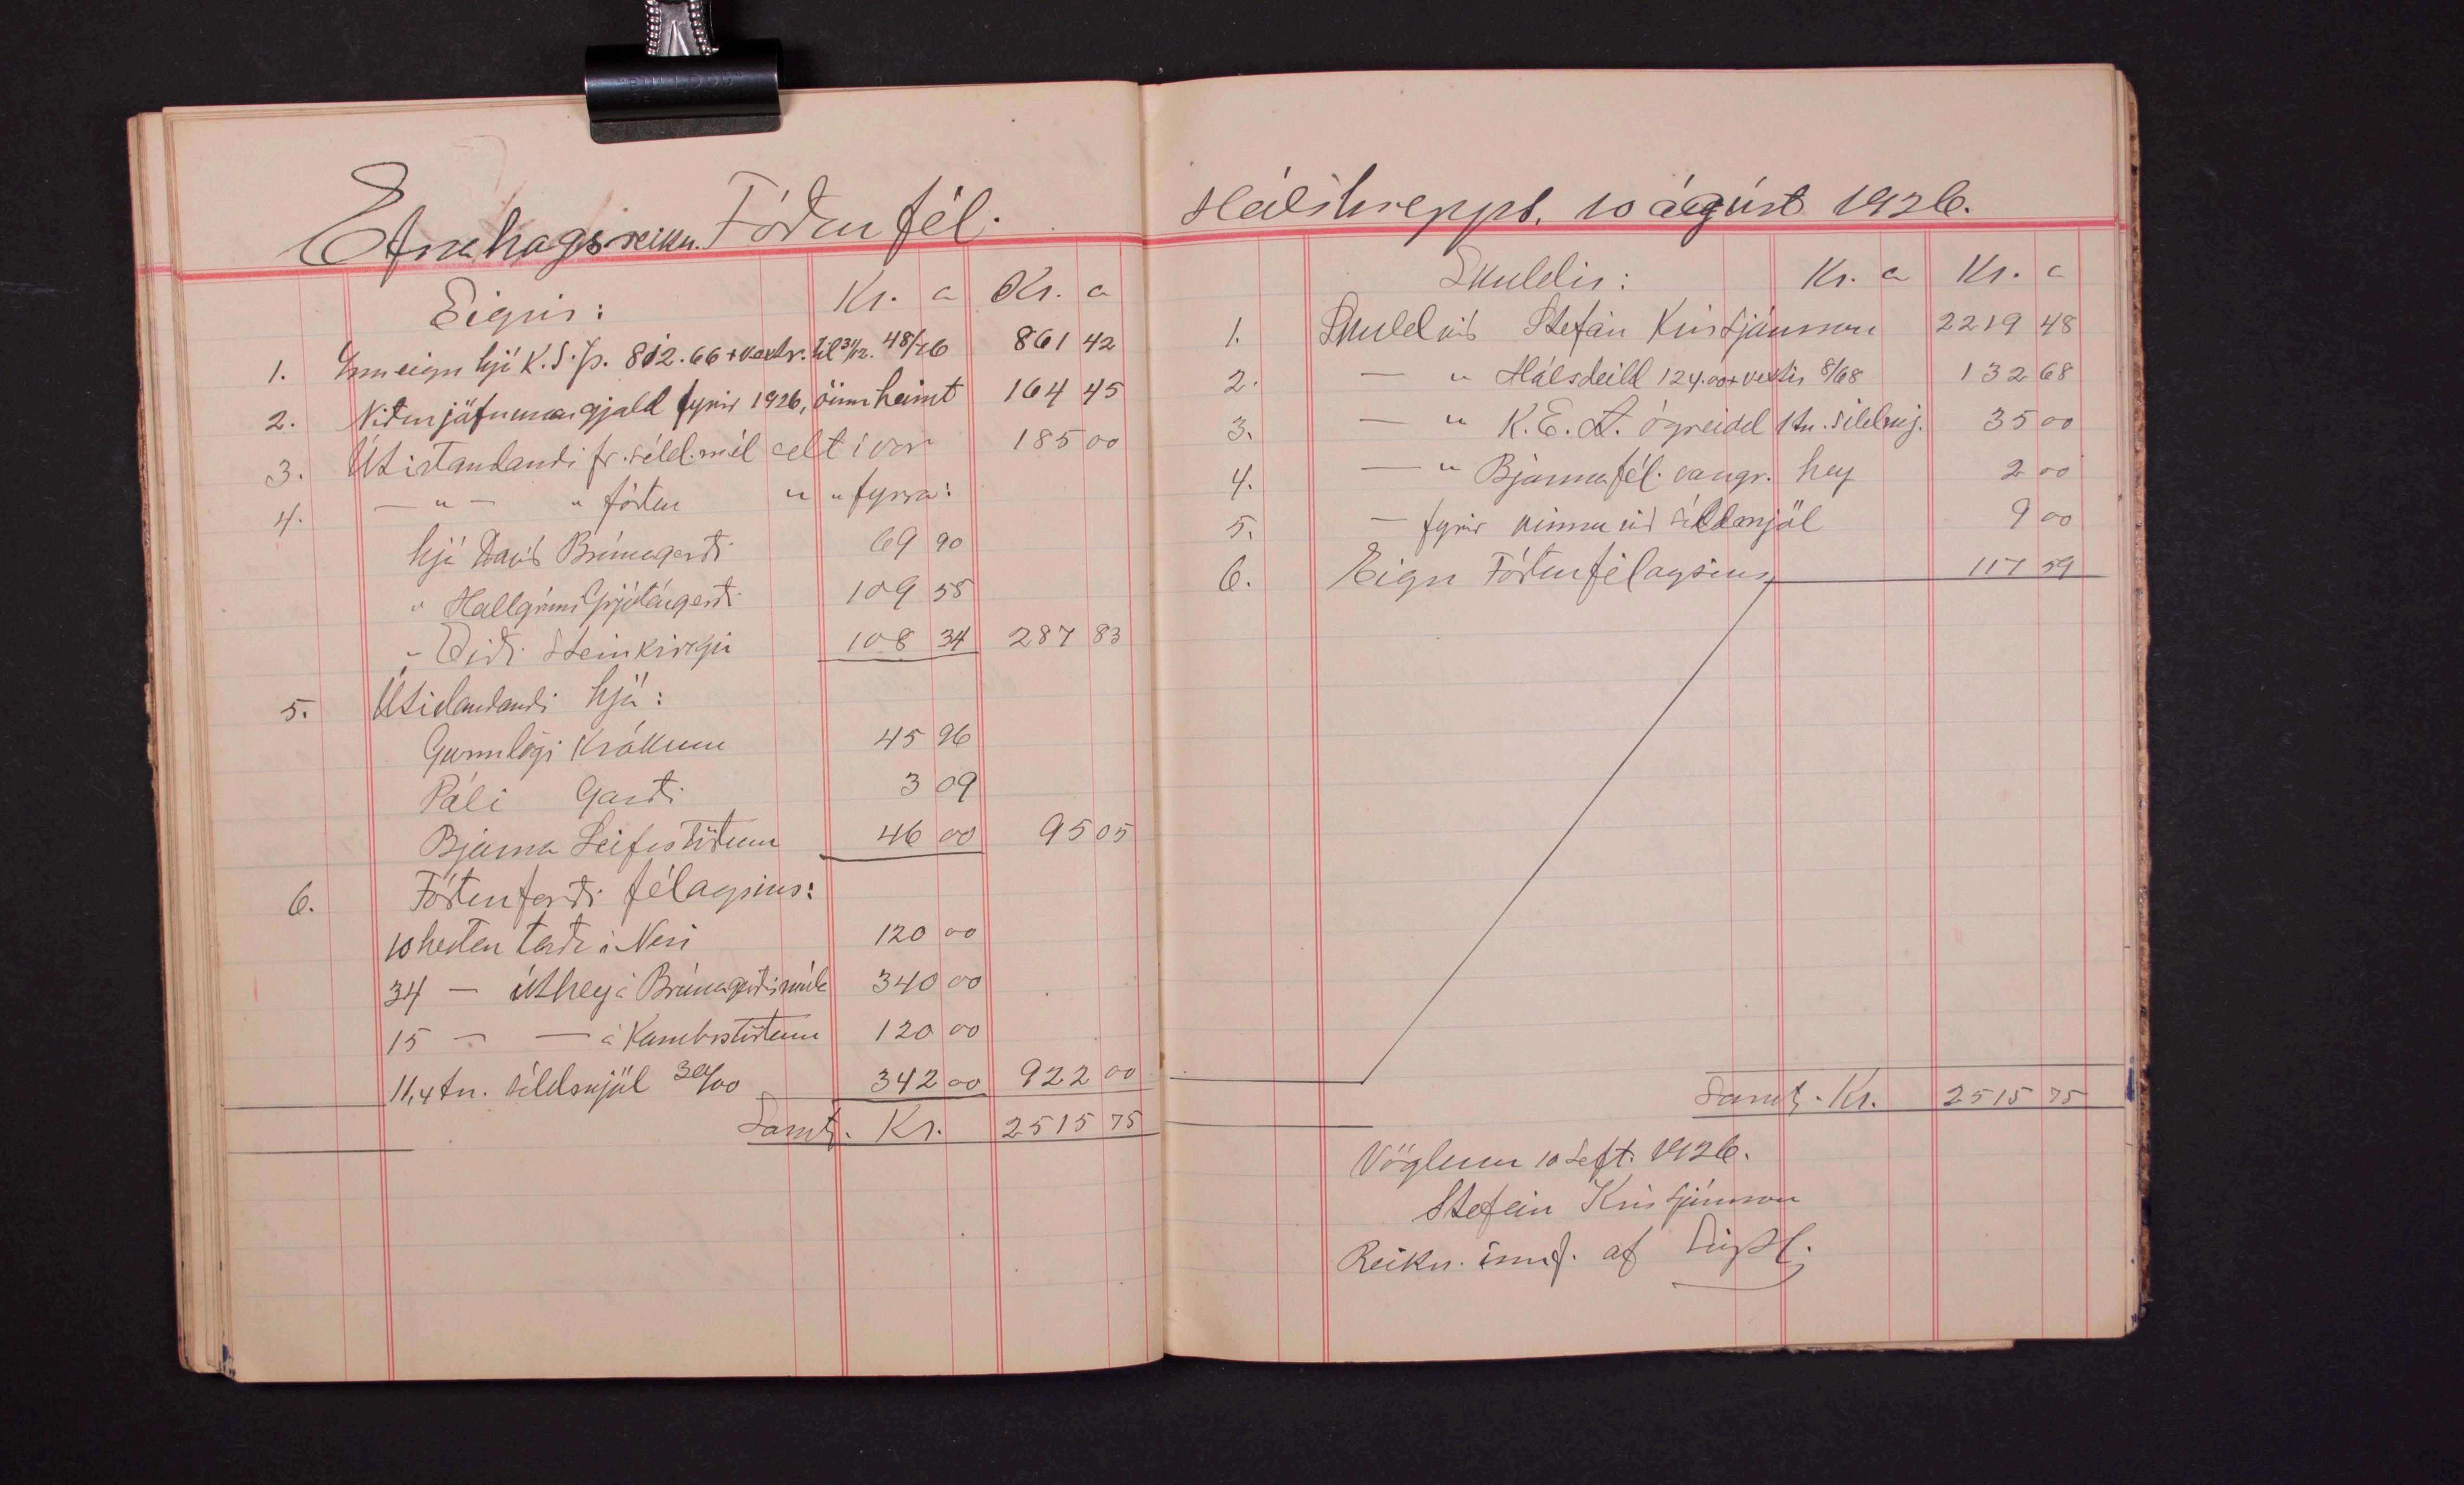 "BULLDOG"
Efnahagsreikn. Fóðurfél.
Eignir: Kr. a Kr. a
1. Inneign hjá K.S.Þ. 812.66 + vextr. til 31/12. 48/76 861 42
2. Niðurjöfnunargjald fyrir 1926, óinnheimt 164 45
3. Útistandandi fr. síld.mél selt í vor 185 00
4. — " — " fóður " " fyrra:
hjá Davíð Brúnagerði 69 90
" Hallgrími Grjótárgerði 109 58
" Eiði Steinkirkju 108 34 287 83
5. Útistandandi hjá:
Gunnlögi Krókum 45 96
Páli Garði 3 09
Bjarna Leifsstöðum 46 00 95 05
6. Fóðurforði félagsins:
10 hestar taða í Nesi 120 00
34 — úthey á Brúnagerðismúla 340 00
15 — — á Kambsstöðum 120 00
11,4 tn. síldmjöl 30/00 342 00 922 00
Samt. Kr. 2515 75
Hálshrepps. 10 ágúst 1926.
Skuldir: Kr. a Kr. a
1. Skuld við Stefán Kristjánsson 2219 48
2. — " Hálsdeild 124.00 + vextir 8/68 132 68
3. — " K.E.A. ógreidd 1 tn. síldmj. 35 00
4. — " Bjarmafél. vangr. hey 2 00
5. — fyrir vinnu við síldmjöl 9 00
6. Eign Fóðurfélagsins 117 59
Samt. Kr. 2515 75
Vöglum 10 Sept. 1926.
Stefán Kristjánsson
Reikn. innf. af